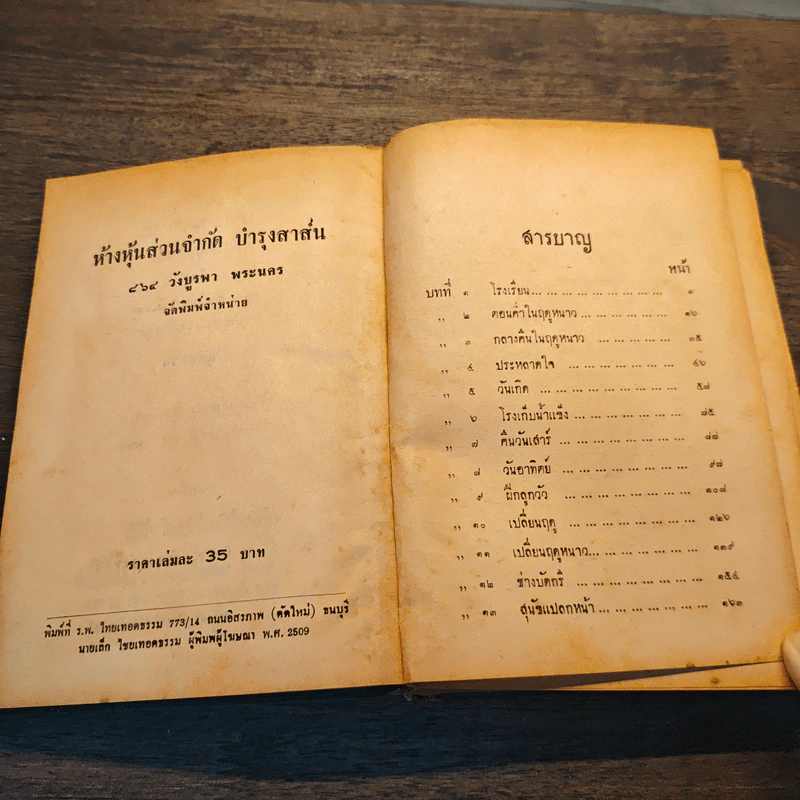 ห้างหุ้นส่วนจำกัด บำรุงสาส์น
๘๖๔ วังบูรพา พระนคร
จัดพิมพ์จำหน่าย
ราคาเล่มละ 35 บาท
พิมพ์ที่ ร.พ. ไทยเทอดธรรม 773/14 ถนนอิสรภาพ (ตัดใหม่) ธนบุรี
นายเล็ก ไชยเทอดธรรม ผู้พิมพ์ผู้โฆษณา พ.ศ. 2509
สารบาญ
หน้า
บทที่ ๑ โรงเรียน... ... ... ... ... ... ... ๑
,, ๒ ตอนค่ำในฤดูหนาว ... ... ... ... ๑๖
,, ๓ กลางคืนในฤดูหนาว ... ... ... ... ๓๕
,, ๔ ประหลาดใจ ... ... ... ... ... ... ๔๖
,, ๕ วันเกิด ... ... ... ... ... ... ... ๕๗
,, ๖ โรงเก็บน้ำแข็ง ... ... ... ... ... ๗๕
,, ๗ คืนวันเสาร์ ... ... ... ... ... ... ๘๗
,, ๘ วันอาทิตย์ ... ... ... ... ... ... ๙๗
,, ๙ ฝึกลูกวัว ... ... ... ... ... ... ๑๐๘
,, ๑๐ เปลี่ยนฤดู ... ... ... ... ... ... ๑๒๖
,, ๑๑ เปลี่ยนฤดูหนาว... ... ... ... ...
,, ๑๒ ช่างบัดกรี ... ... ... ... ... ... ๑๕๔
,, ๑๓ สุนัขแปลกหน้า ... ... ... ... ... ๑๖๓